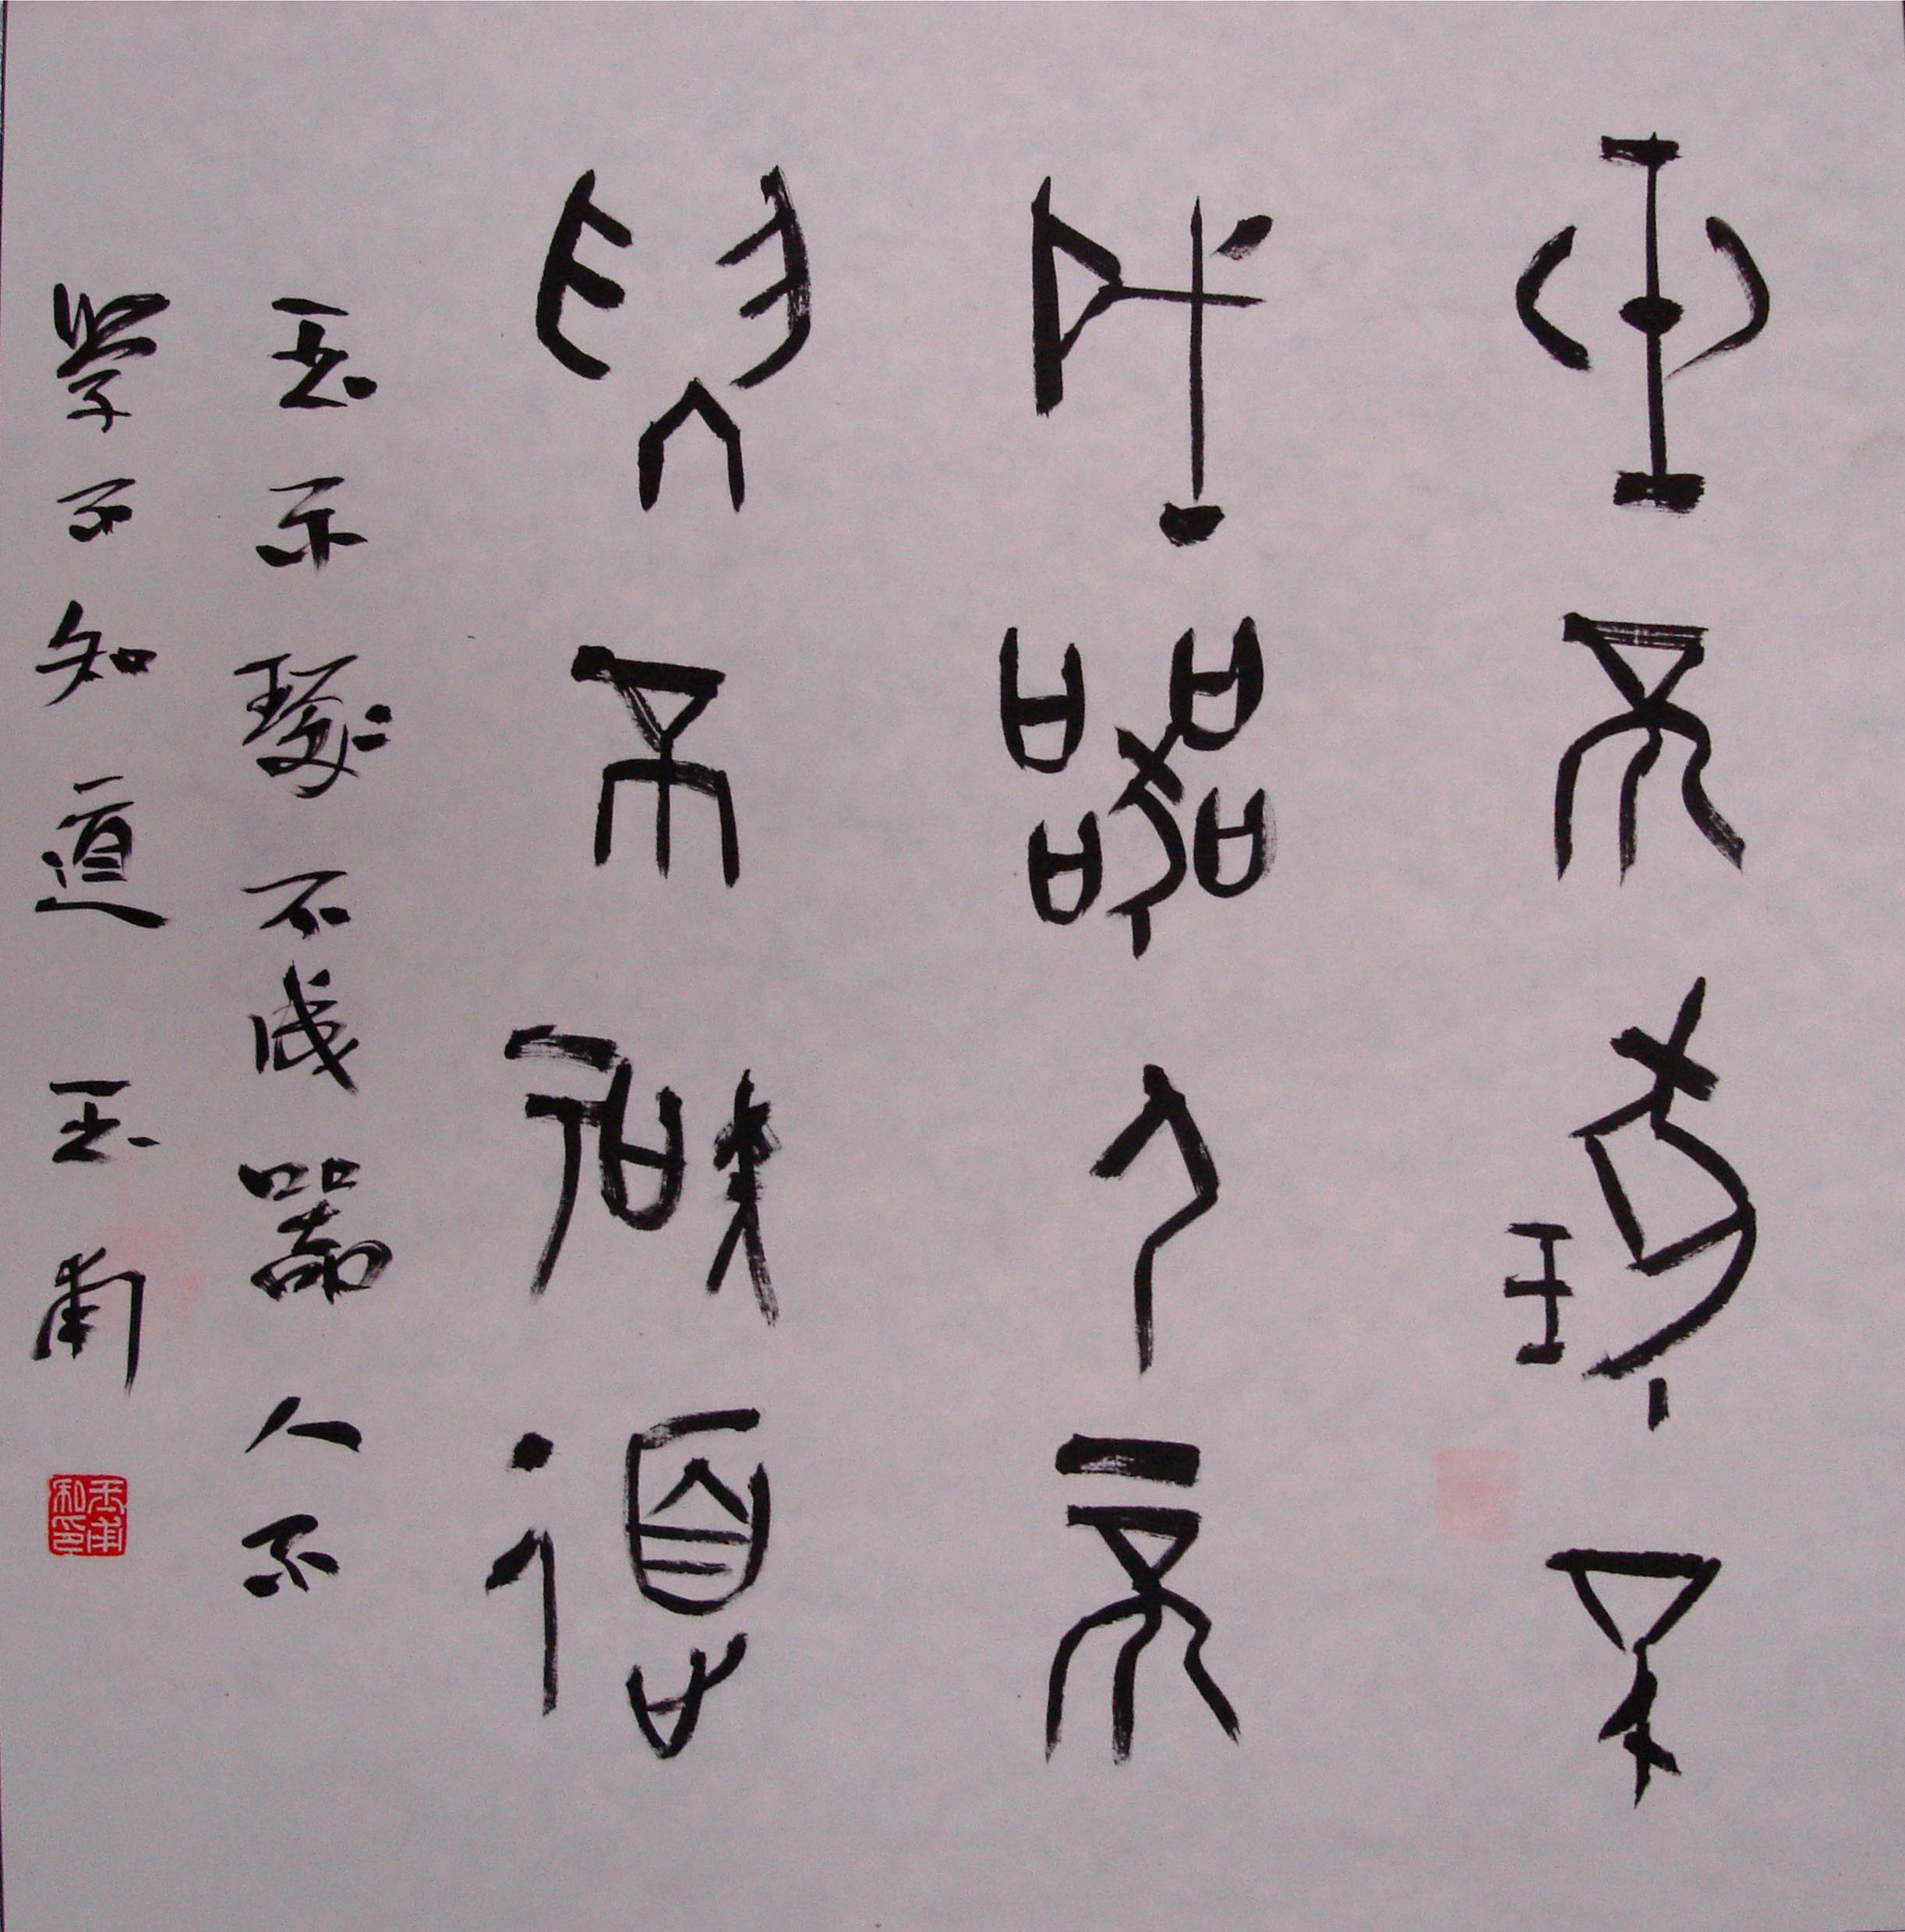 玉不琢不
成器人不
學不知道
玉不琢不成器人不
學不知道 玉甫
玉甫私印